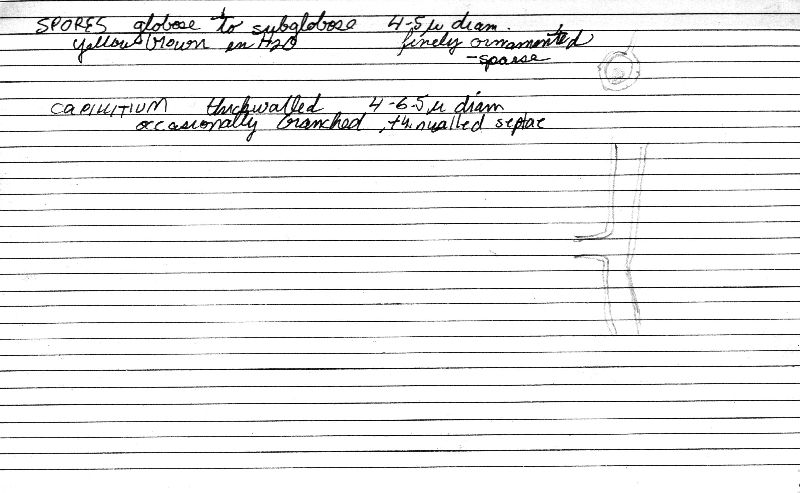 SPORES globose to subglobose 4-5µ diam.
yellow brown in H2O finely ornamented
-sparse
CAPILLITIUM thickwalled 4-6.5µ diam
occasionally branched, thinwalled septae